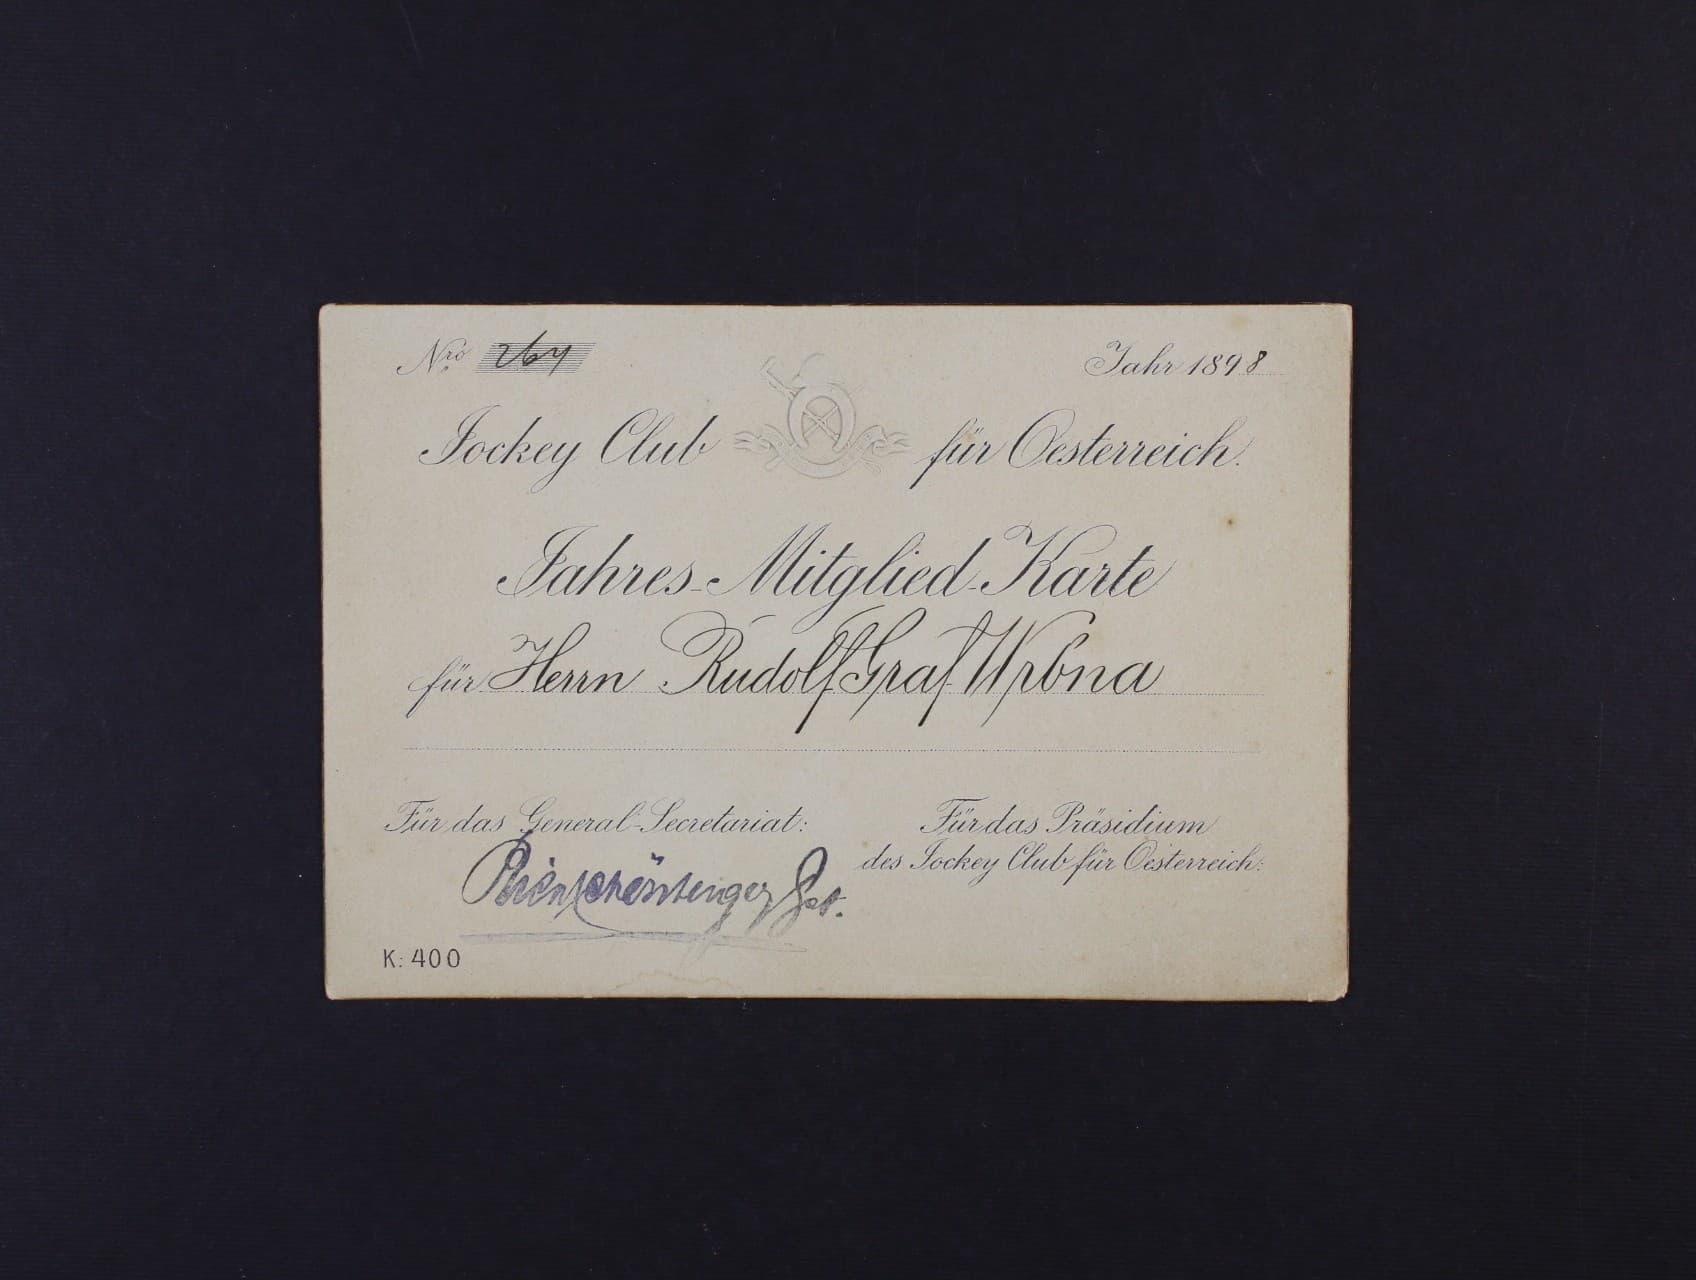 Nrọ 264
Jahr 1898
Jockey Club für Oesterreich.
Jahres-Mitglied-Karte
für Herrn Rudolf Graf Wrbna
Für das General-Secretariat:
Für das Präsidium
des Jockey Club für Oesterreich:
K: 400